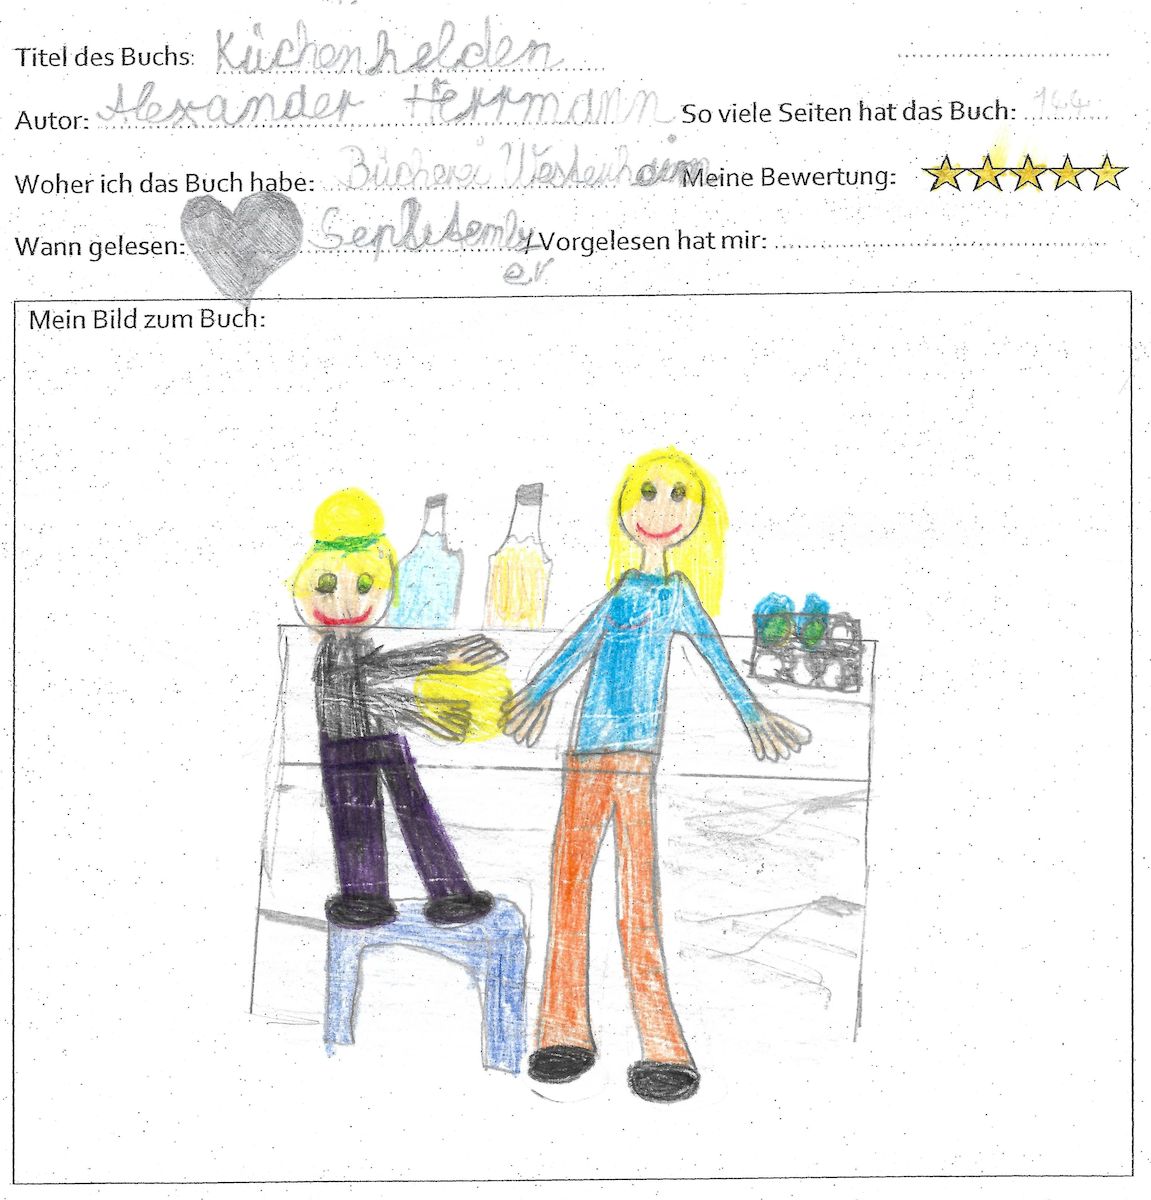 Titel des Buchs: Küchenhelden
Autor: Alexander Herrmann
So viele Seiten hat das Buch: 144
Woher ich das Buch habe: Bücherei Westerheim
Meine Bewertung:
Wann gelesen: / Vorgelesen hat mir:
Mein Bild zum Buch: